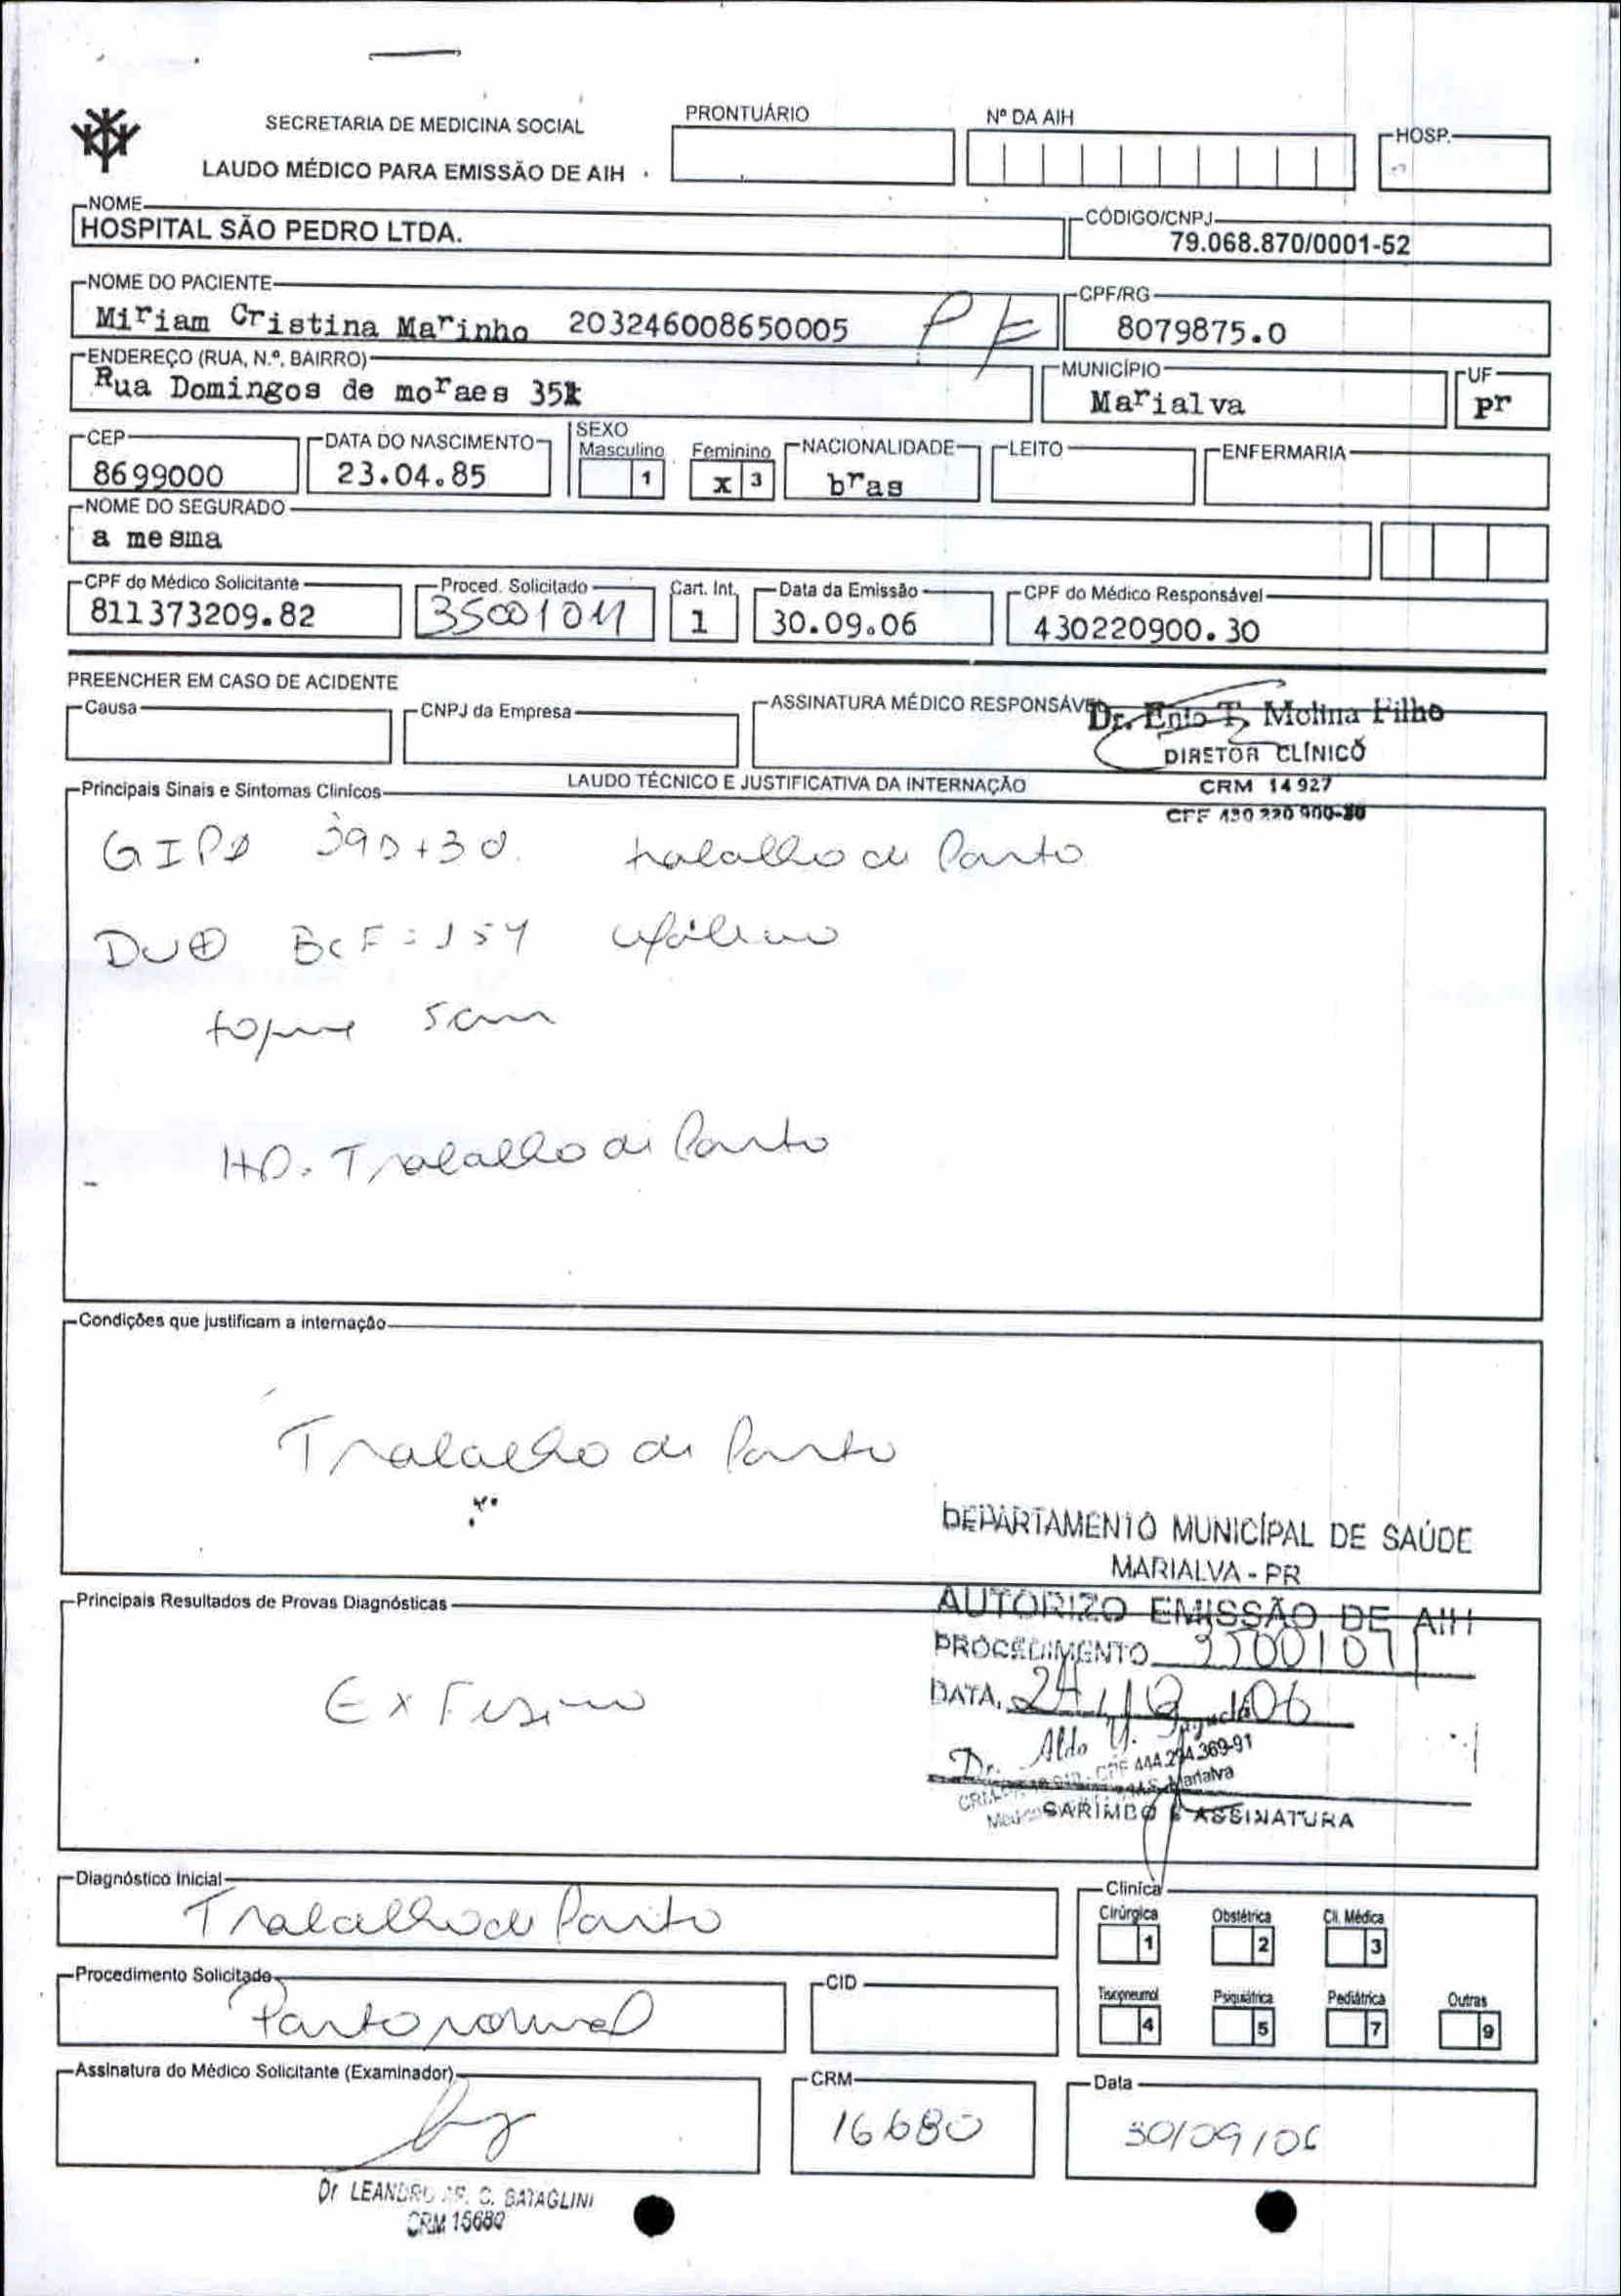 SECRETARIA DE MEDICINA SOCIAL
LAUDO MÉDICO PARA EMISSÃO DE AIH
PRONTUÁRIO
Nº DA AIH
HOSP.
NOME
HOSPITAL SÃO PEDRO LTDA.
CÓDIGO/CNPJ
79.068.870/0001-52
NOME DO PACIENTE
Miriam Cristina Marinho 203246008650005
CPF/RG
8079875.0
ENDEREÇO (RUA, N.º, BAIRRO)
Rua Domingos de moraes
MUNICÍPIO
Marialva
UF
pr
CEP
8699000
DATA DO NASCIMENTO
23.04.85
SEXO
Masculino 1
Feminino x 3
NACIONALIDADE
bras
LEITO
ENFERMARIA
NOME DO SEGURADO
a mesma
CPF do Médico Solicitante
811373209.82
Proced. Solicitado
35001011
Cart. Int.
1
Data da Emissão
30.09.06
CPF do Médico Responsável
430220900.30
PREENCHER EM CASO DE ACIDENTE
Causa
CNPJ da Empresa
ASSINATURA MÉDICO RESPONSÁVEL
Dr. Enio T. Molina Filho
DIRETOR CLÍNICO
CRM 14927
LAUDO TÉCNICO E JUSTIFICATIVA DA INTERNAÇÃO
Principais Sinais e Sintomas Clínicos
trabalho de Parto
DU⊕ BCF = 154 cefálico
toque 5cm
HD. Trabalho de Parto
Condições que justificam a internação
Trabalho de Parto
DEPARTAMENTO MUNICÍPAL DE SAÚDE
MARIALVA - PR
AUTORIZO EMISSÃO DE AIH
Principais Resultados de Provas Diagnósticas
PROCEDIMENTO 35001011
DATA
Ex Fisico
Dr. Aldo Y.
CPF 444.294.369-91
Marialva
CARIMBO E ASSINATURA
Diagnóstico Inicial
Trabalho de Parto
Clínica
Cirúrgica 1
Obstétrica 2
Cli. Médica 3
Tisiopneumol 4
Psiquiátrica 5
Pediátrica 7
Outras 9
Procedimento Solicitado
Parto normal
CID
Assinatura do Médico Solicitante (Examinador)
CRM
16680
Data
30/09/06
Dr LEANDRO AP. C. BATAGLINI
CRM 15680